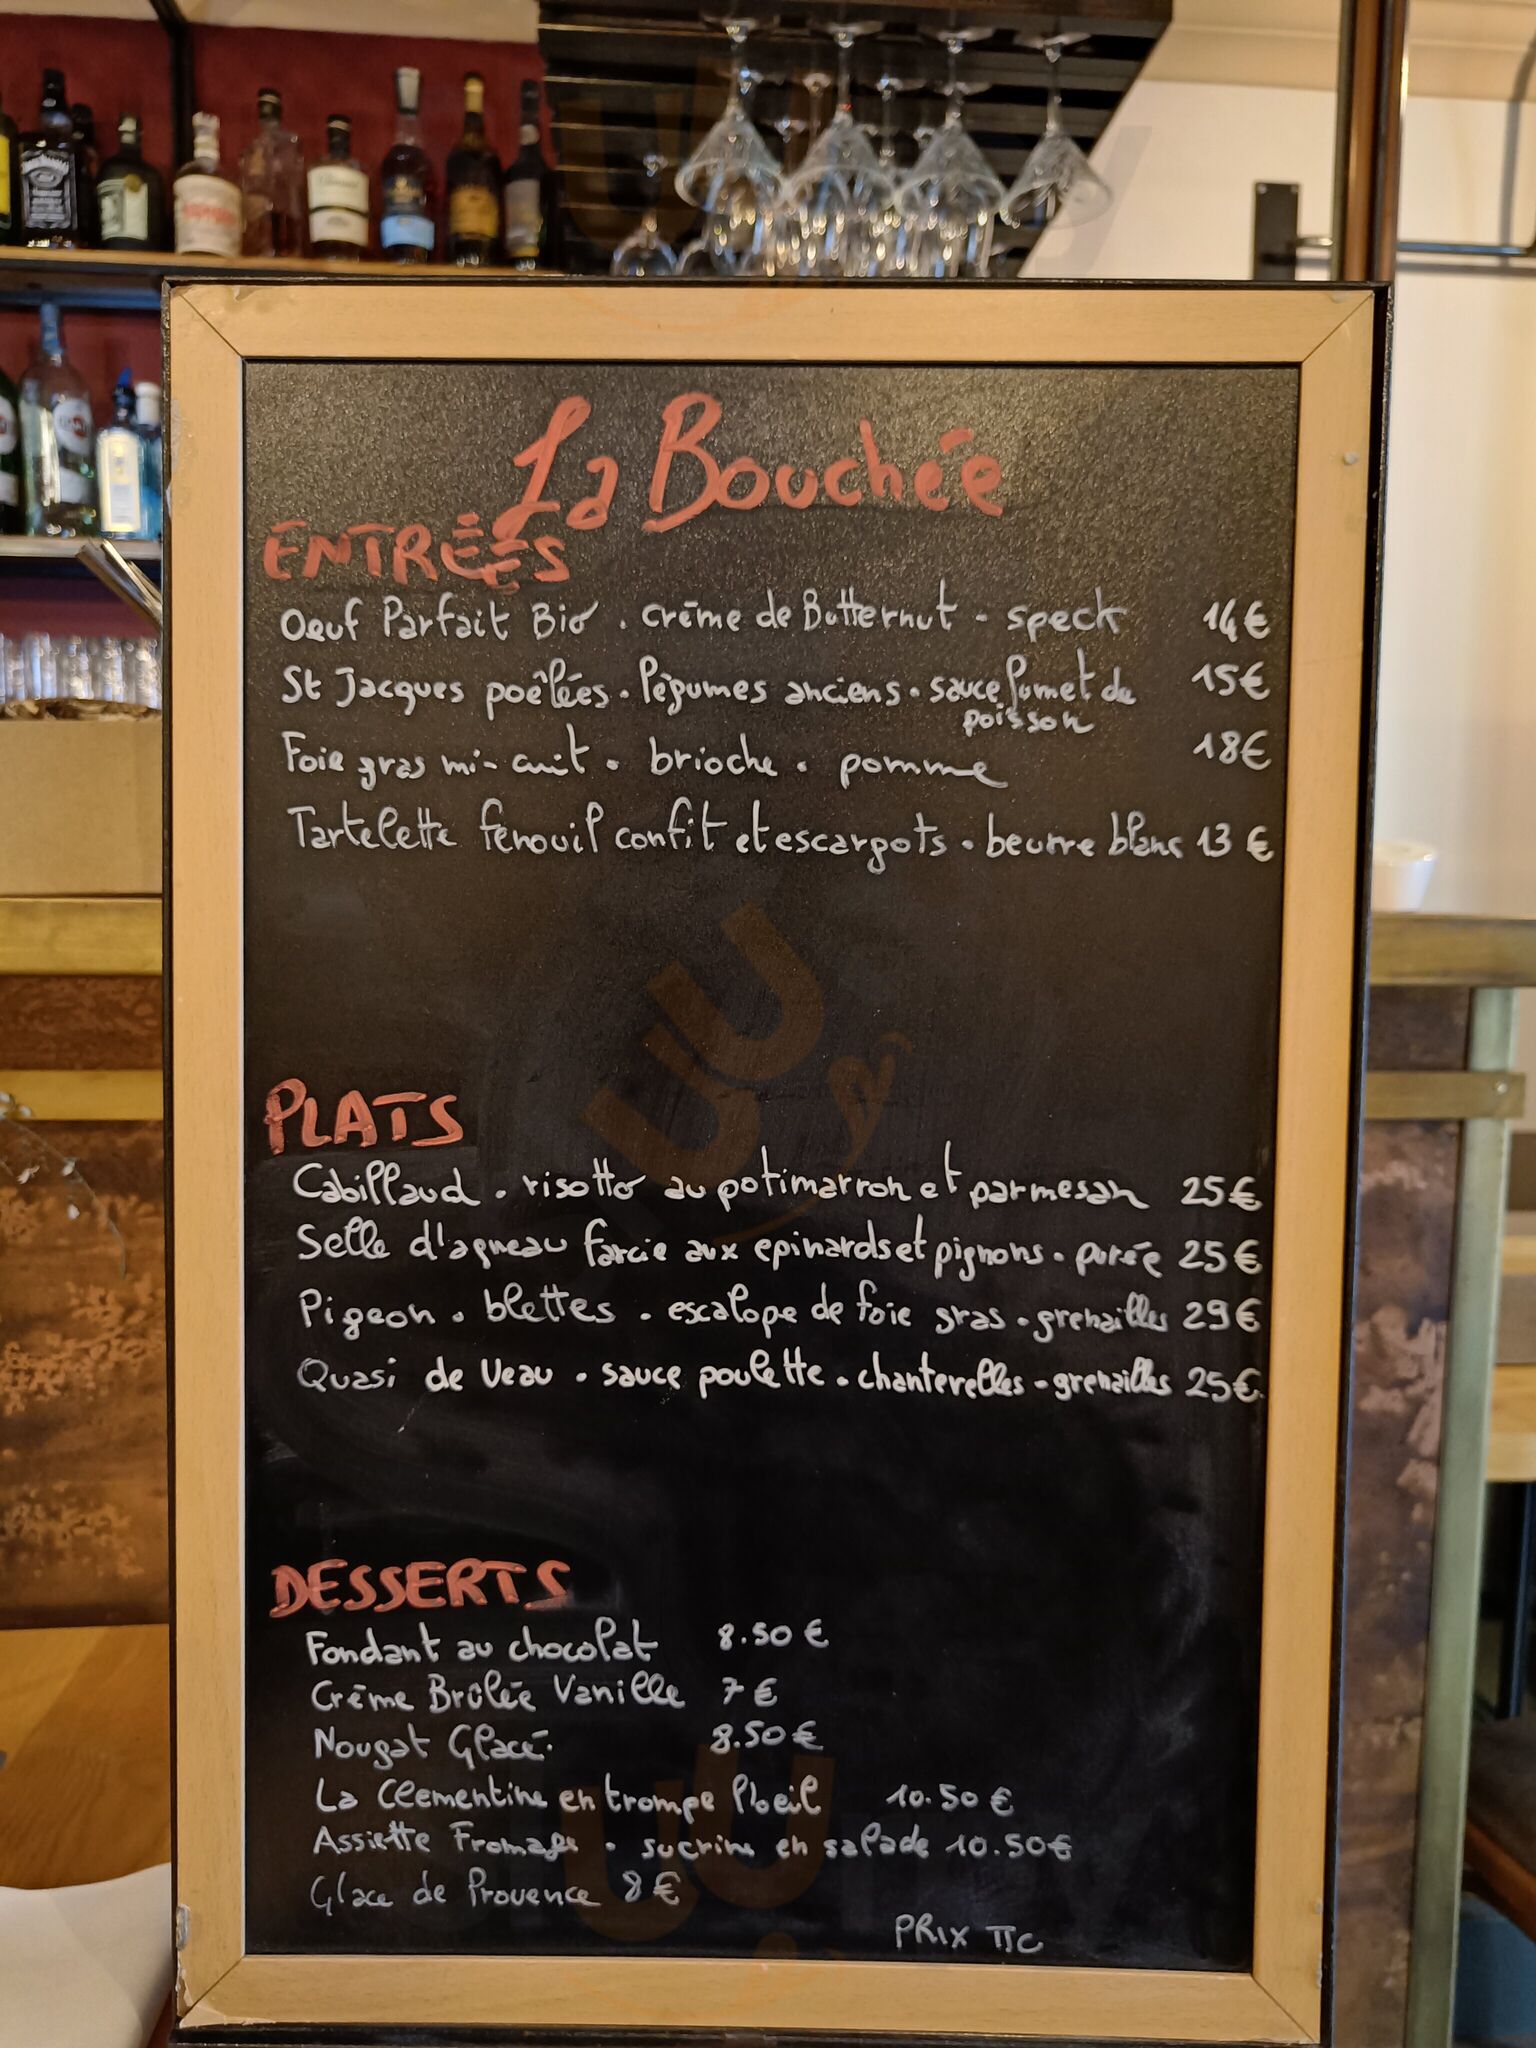 La Bouchée
ENTRÉES
Oeuf Parfait Bio . crème de Butternut - speck 14€
St Jacques poêlées . légumes anciens . sauce fumet de 15€
poisson
Foie gras mi-cuit . brioche . pomme 18€
Tartelette fenouil confit et escargots . beurre blanc 13 €
PLATS
Cabillaud . risotto au potimarron et parmesan 25€
Selle d'agneau farcie aux epinards et pignons . purée 25€
Pigeon . blettes . escalope de foie gras . grenailles 29€
Quasi de Veau . sauce poulette . chanterelles - grenailles 25€
DESSERTS
Fondant au chocolat 8.50 €
Crème Brûlée Vanille 7 €
Nougat Glacé 8.50 €
La Clementine en trompe l'oeil 10.50 €
Assiette Fromage . sucrine en salade 10.50€
Glace de Provence 8 €
PRIX TTC